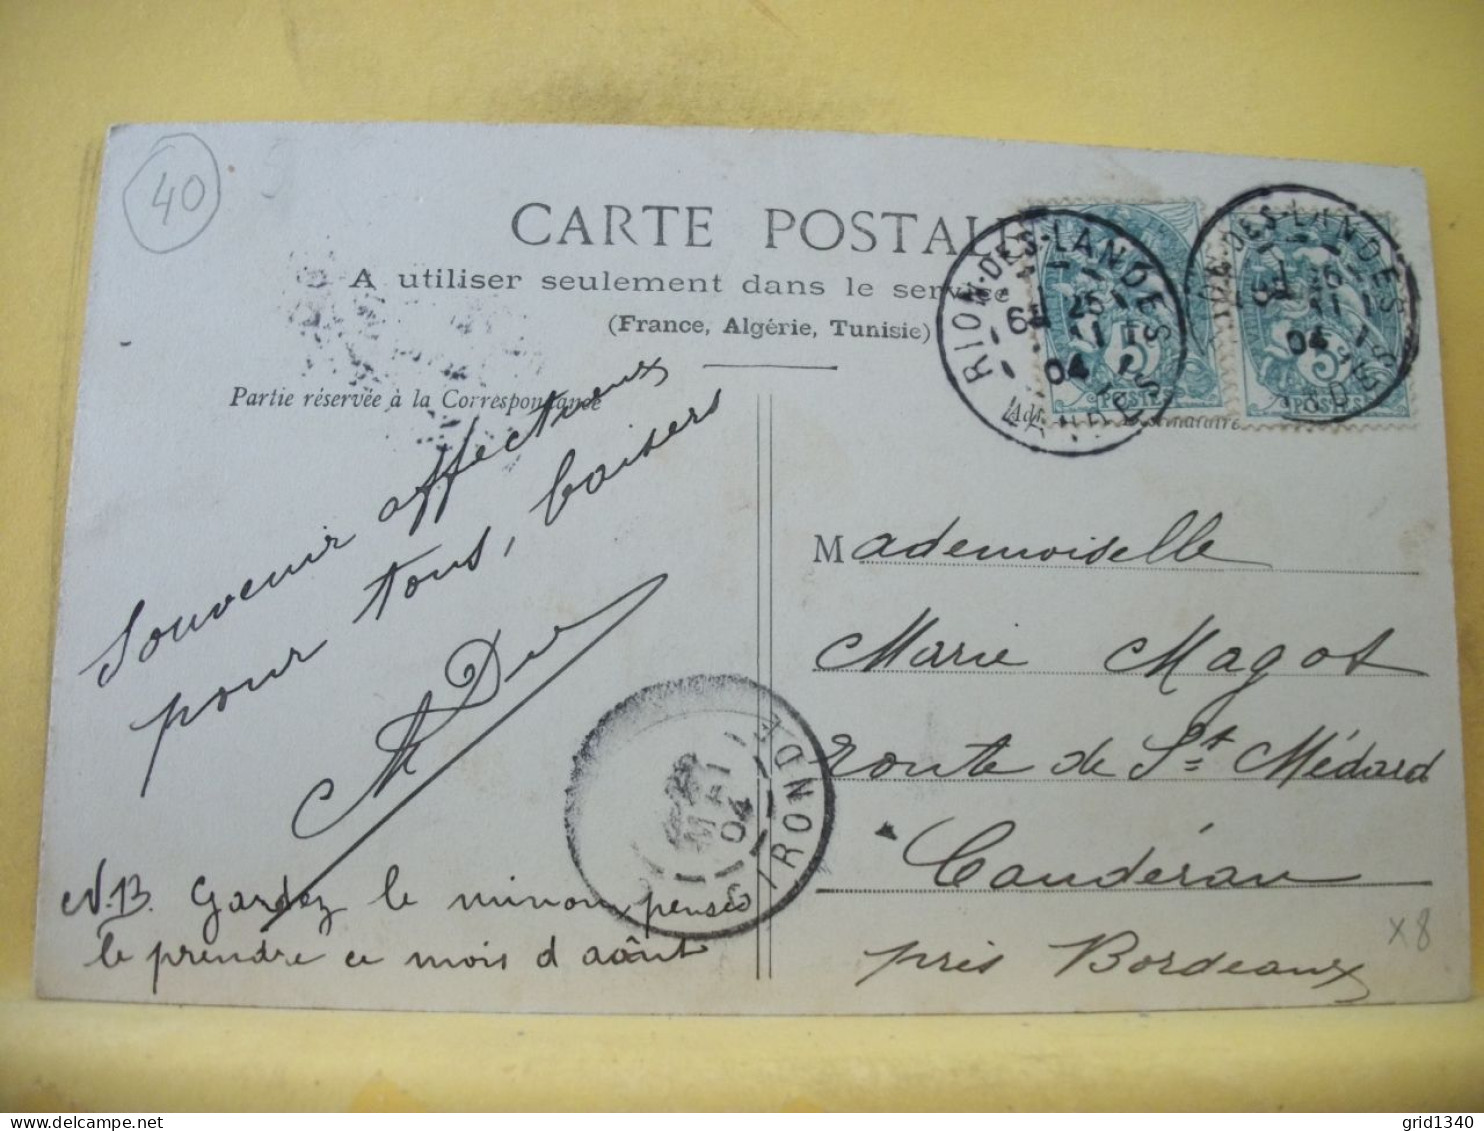 40
CARTE POSTALE
A utiliser seulement dans le service
(France, Algérie, Tunisie)
Partie réservée à la Correspondance
RION-DES-LANDES
6E 25
04
LANDES
5
POSTES
DES-LANDES
04
5
POSTES
Souvenir affectueux
pour tous, baisers
N.B. Gardez le minou, pensée
le prendre ce mois d'août
GIRONDE
MAI
04
Mademoiselle
Marie Magot
Route de St Médard
Caudéran
près Bordeaux
x8
grid1340